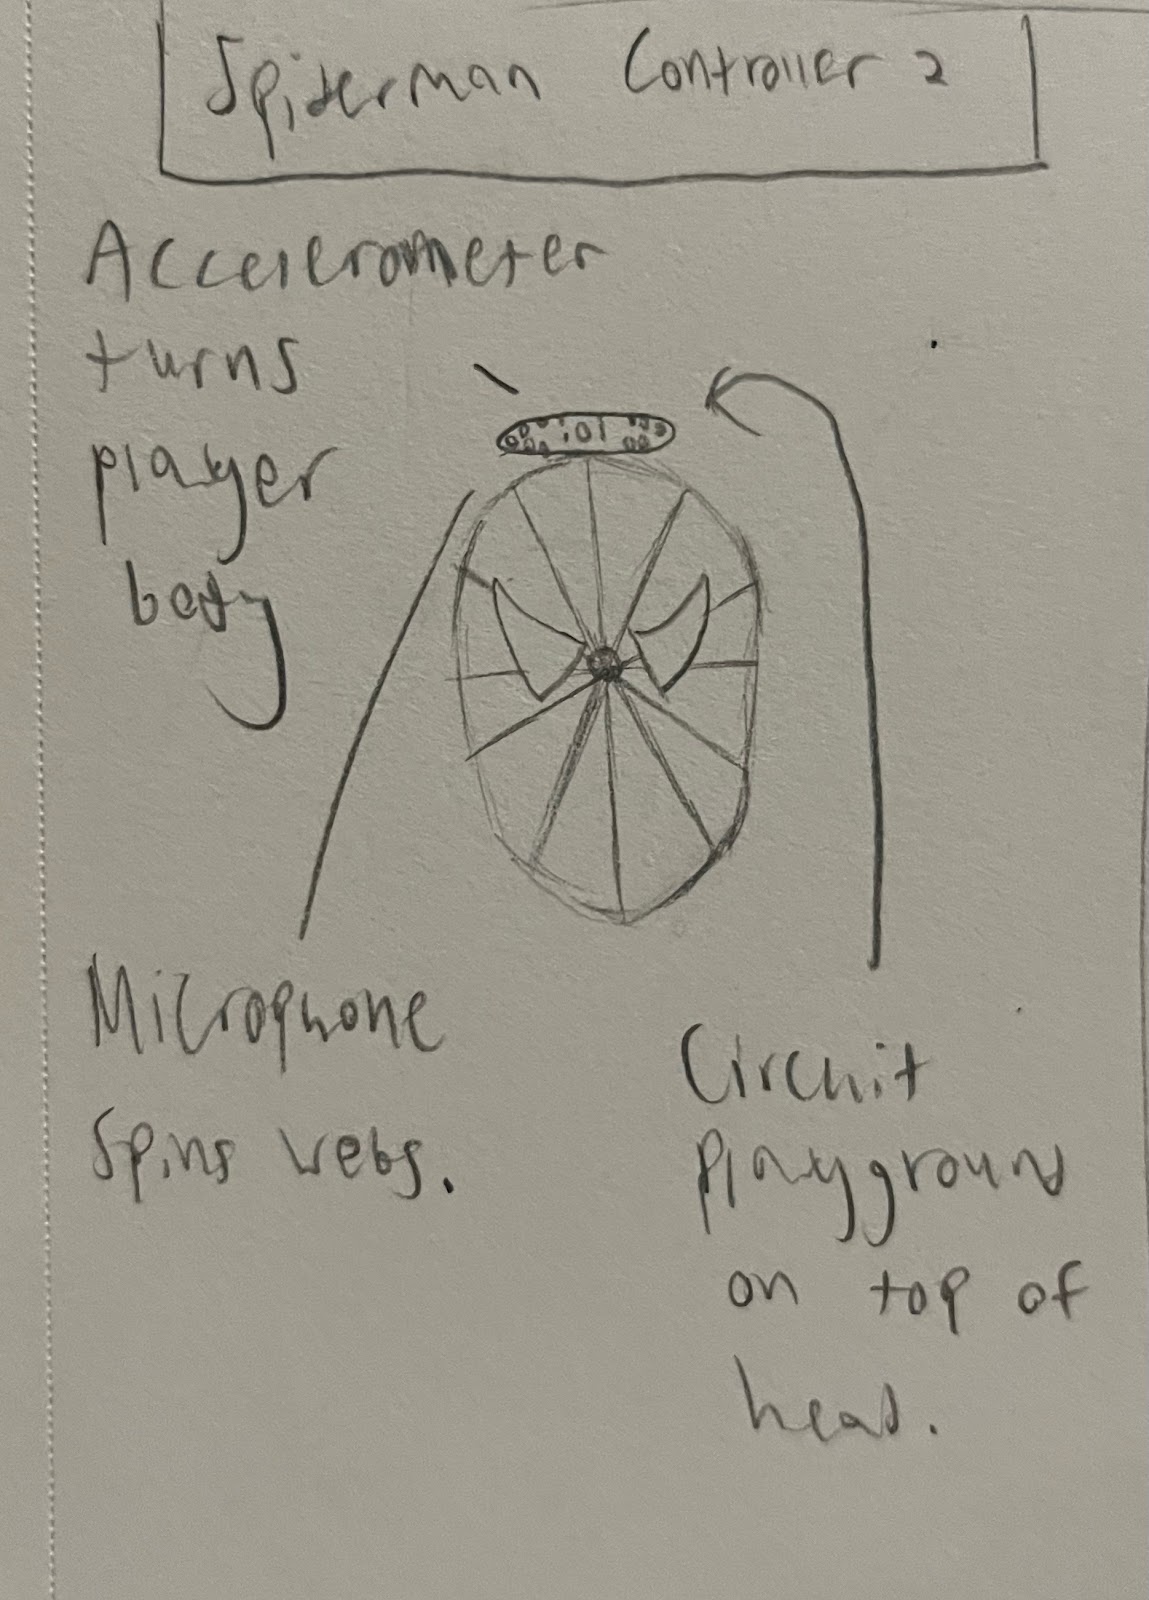 Spiderman Controller 2
Accelerometer
turns
player
body
Microphone
Spins webs.
Circuit
playground
on top of
head.